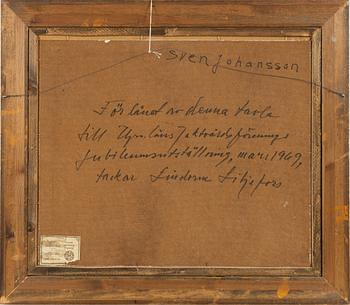 Sven Johansson
För lånet av denna tavla
till Uppl. läns Jaktvårdsförenings
Jubileumsutställning, mars 1969,
tackar Lindorm Liljefors